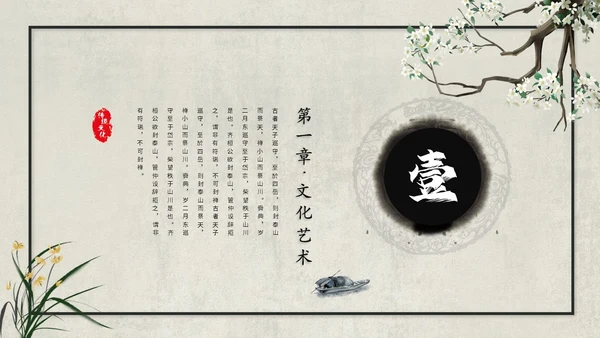 壹
第一章·文化艺术
古者天子巡守，至於四岳，则封泰山
而祭天，禅小山而祭山川。舜典，岁
二月东巡守至于岱宗，柴望秩于山川
是也。齐桓公欲封泰山，管仲设辞拒
之，谓非有符瑞，不可封禅古者天子
巡守，至於四岳，则封泰山而祭天，
禅小山而祭山川。舜典，岁二月东巡
守至于岱宗，柴望秩于山川是也。齐
桓公欲封泰山，管仲设辞拒之，谓非
有符瑞，不可封禅。
传统文化